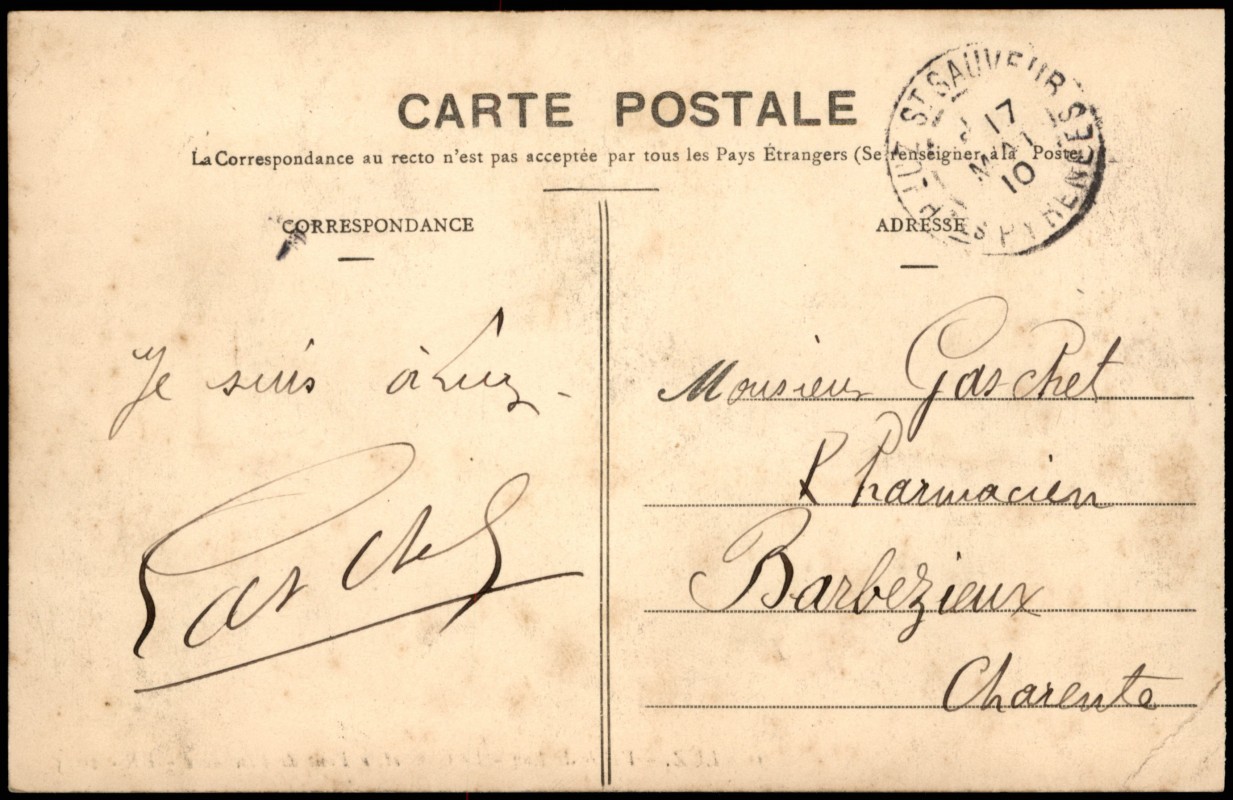 CARTE POSTALE
La Correspondance au recto n'est pas acceptée par tous les Pays Étrangers (Se renseigner à la Poste
CORRESPONDANCE
ADRESSE
LUZ-ST SAUVEUR
17
MAI
10
HTES PYRENEES
Je suis à Luz -
Monsieur Gaschet
Pharmacien
Barbezieux
Charente